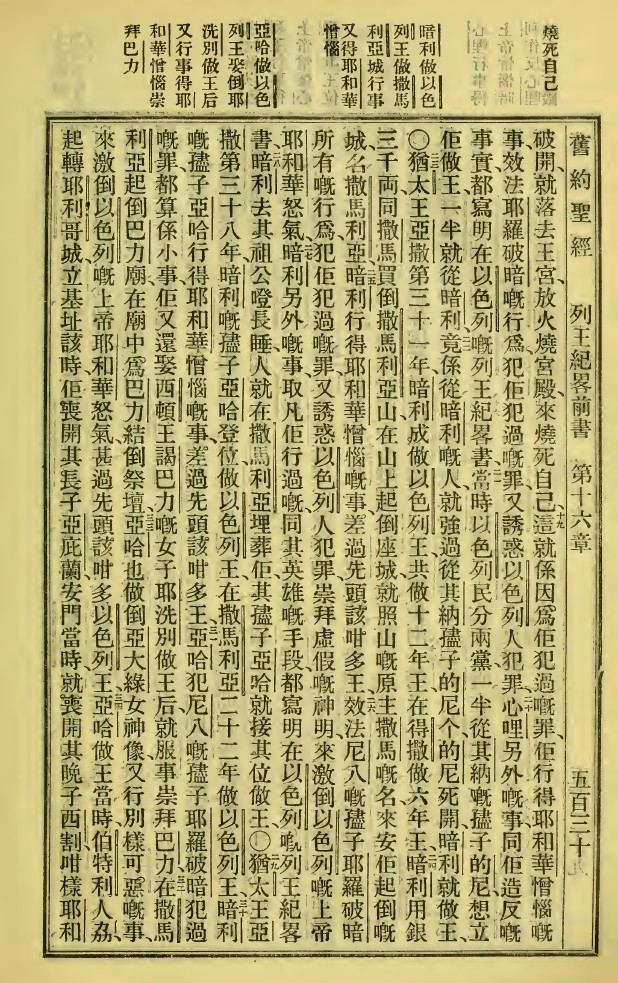 舊約聖經 列王紀畧前書 第十六章 五百三十九
燒死自己
暗利做以色
列王做撒馬
利亞城行事
又得耶和華
憎惱
亞哈做以色
列王娶倒耶
洗別做王后
又行事得耶
和華憎惱崇
拜巴力
破開就落去王宮放火燒宮殿來燒死自己、十九這就係因爲佢犯過嘅罪佢行得耶和華憎惱嘅
事、效法耶羅破暗嘅行爲犯佢犯過嘅罪又誘惑以色列人犯罪心哩另外嘅事同佢造反嘅
事實都寫明在以色列嘅列王紀畧書當時以色列民分兩黨一半從其納嘅孻子的尼想立
佢做王一半就從暗利竟係從暗利嘅人就強過從其納孻子的尼个的尼死開暗利就做王、
〇猶太王亞撒第三十一年暗利成做以色列王共做十二年王在得撒做六年王暗利用銀
三千両同撒馬買倒撒馬利亞山在山上起倒座城就照山嘅原主撒馬嘅名來安佢起倒嘅
城名撒馬利亞、暗利行得耶和華憎惱嘅事差過先頭該咁多王效法尼八嘅孻子耶羅破暗
所有嘅行爲犯佢犯過嘅罪又誘惑以色列人犯罪崇拜虛假嘅神明來激倒以色列嘅上帝
耶和華怒氣暗利另外嘅事取凡佢行過嘅同其英雄嘅手段都寫明在以色列嘅列王紀畧
書暗利去其祖公噔長睡人就在撒馬利亞埋葬佢其孻子亞哈就接其位做王〇猶太王亞
撒第三十八年暗利嘅孻子亞哈登位做以色列王在撒馬利亞二十二年做以色列王、暗利
嘅孻子亞哈行得耶和華憎惱嘅事差過先頭該咁多王亞哈犯尼八嘅孻子耶羅破暗犯過
嘅罪都算係小事佢又還娶西頓王謁巴力嘅女子耶洗別做王后就服事崇拜巴力在撒馬
利亞起倒巴力廟在廟中爲巴力結倒祭壇亞哈也做倒亞大綠女神像又行別樣可惡嘅事、
來激倒以色列嘅上帝耶和華怒氣甚過先頭該咁多以色列王亞哈做王當時伯特利人𠜎
起轉耶利哥城立基址該時佢喪開其長子亞庇蘭安門當時就喪開其晚子西割咁樣耶和